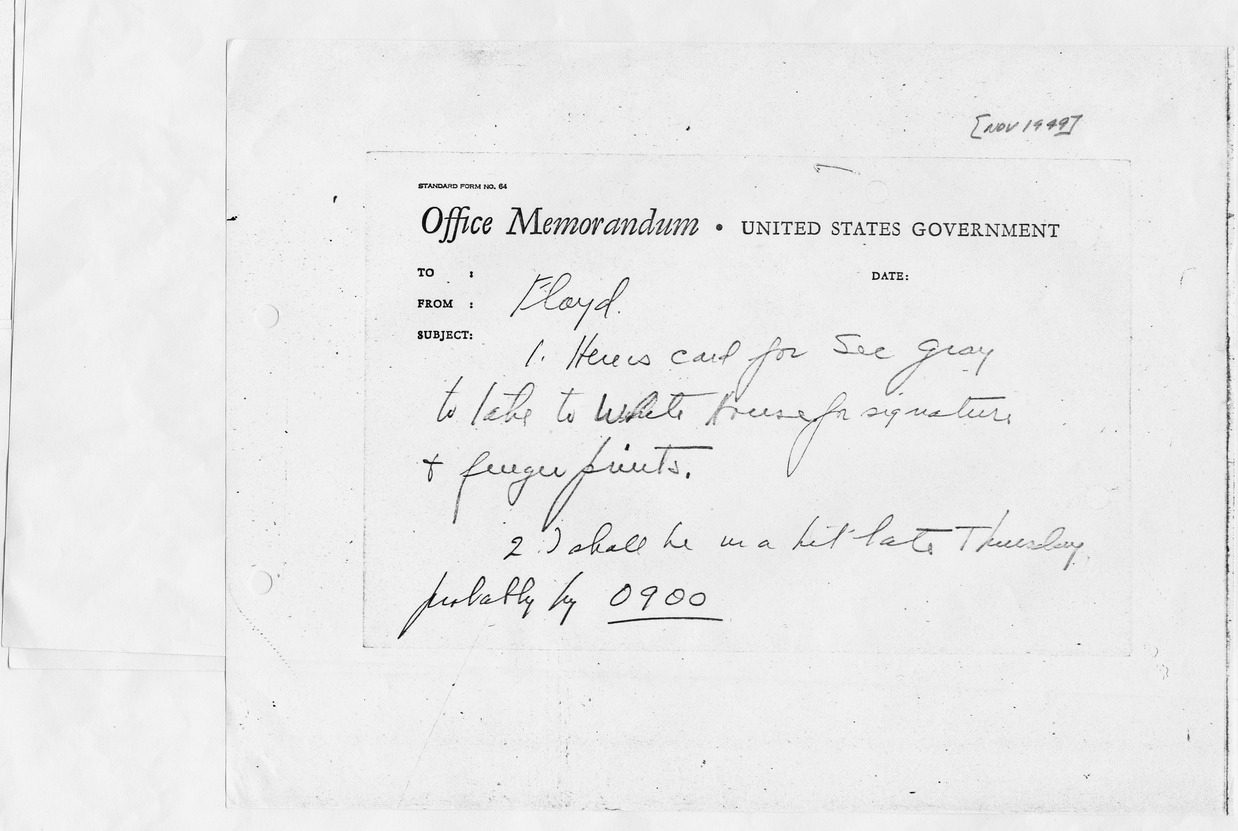 [NOV 1949]
STANDARD FORM NO. 64
Office Memorandum • UNITED STATES GOVERNMENT
TO :
DATE:
Floyd.
FROM :
SUBJECT:
1. Here is card for Sec Gray
to take to White House for signature
+ finger prints.
2. I shall be in a bit late Thursday,
probably by 0900